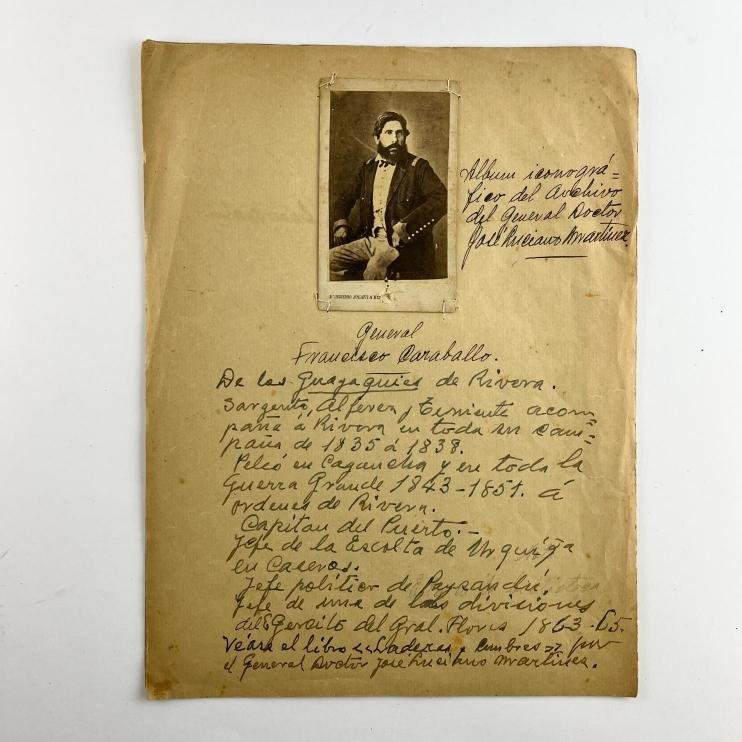 Album iconográ=
fico del Archivo
del General Doctor
José Luciano Martínez.
General
Francisco Caraballo.
De los Guayaquies de Rivera.
Sargento, Alferez y Teniente acom=
paña á Rivera en toda su cam=
paña de 1835 á 1838.
Peleó en Cagancha y en toda la
Guerra Grande 1843-1851. á
ordenes de Rivera.
Capitan del Puerto.-
Jefe de la Escolta de Urquiza
en Caseros.
Jefe politico de Paysandú.
Jefe de una de las divisiones
del Egercito del Gral. Flores 1863-65.
Véase el libro << Laderas y Cumbres >> por
el General Doctor José Luciano Martinez.